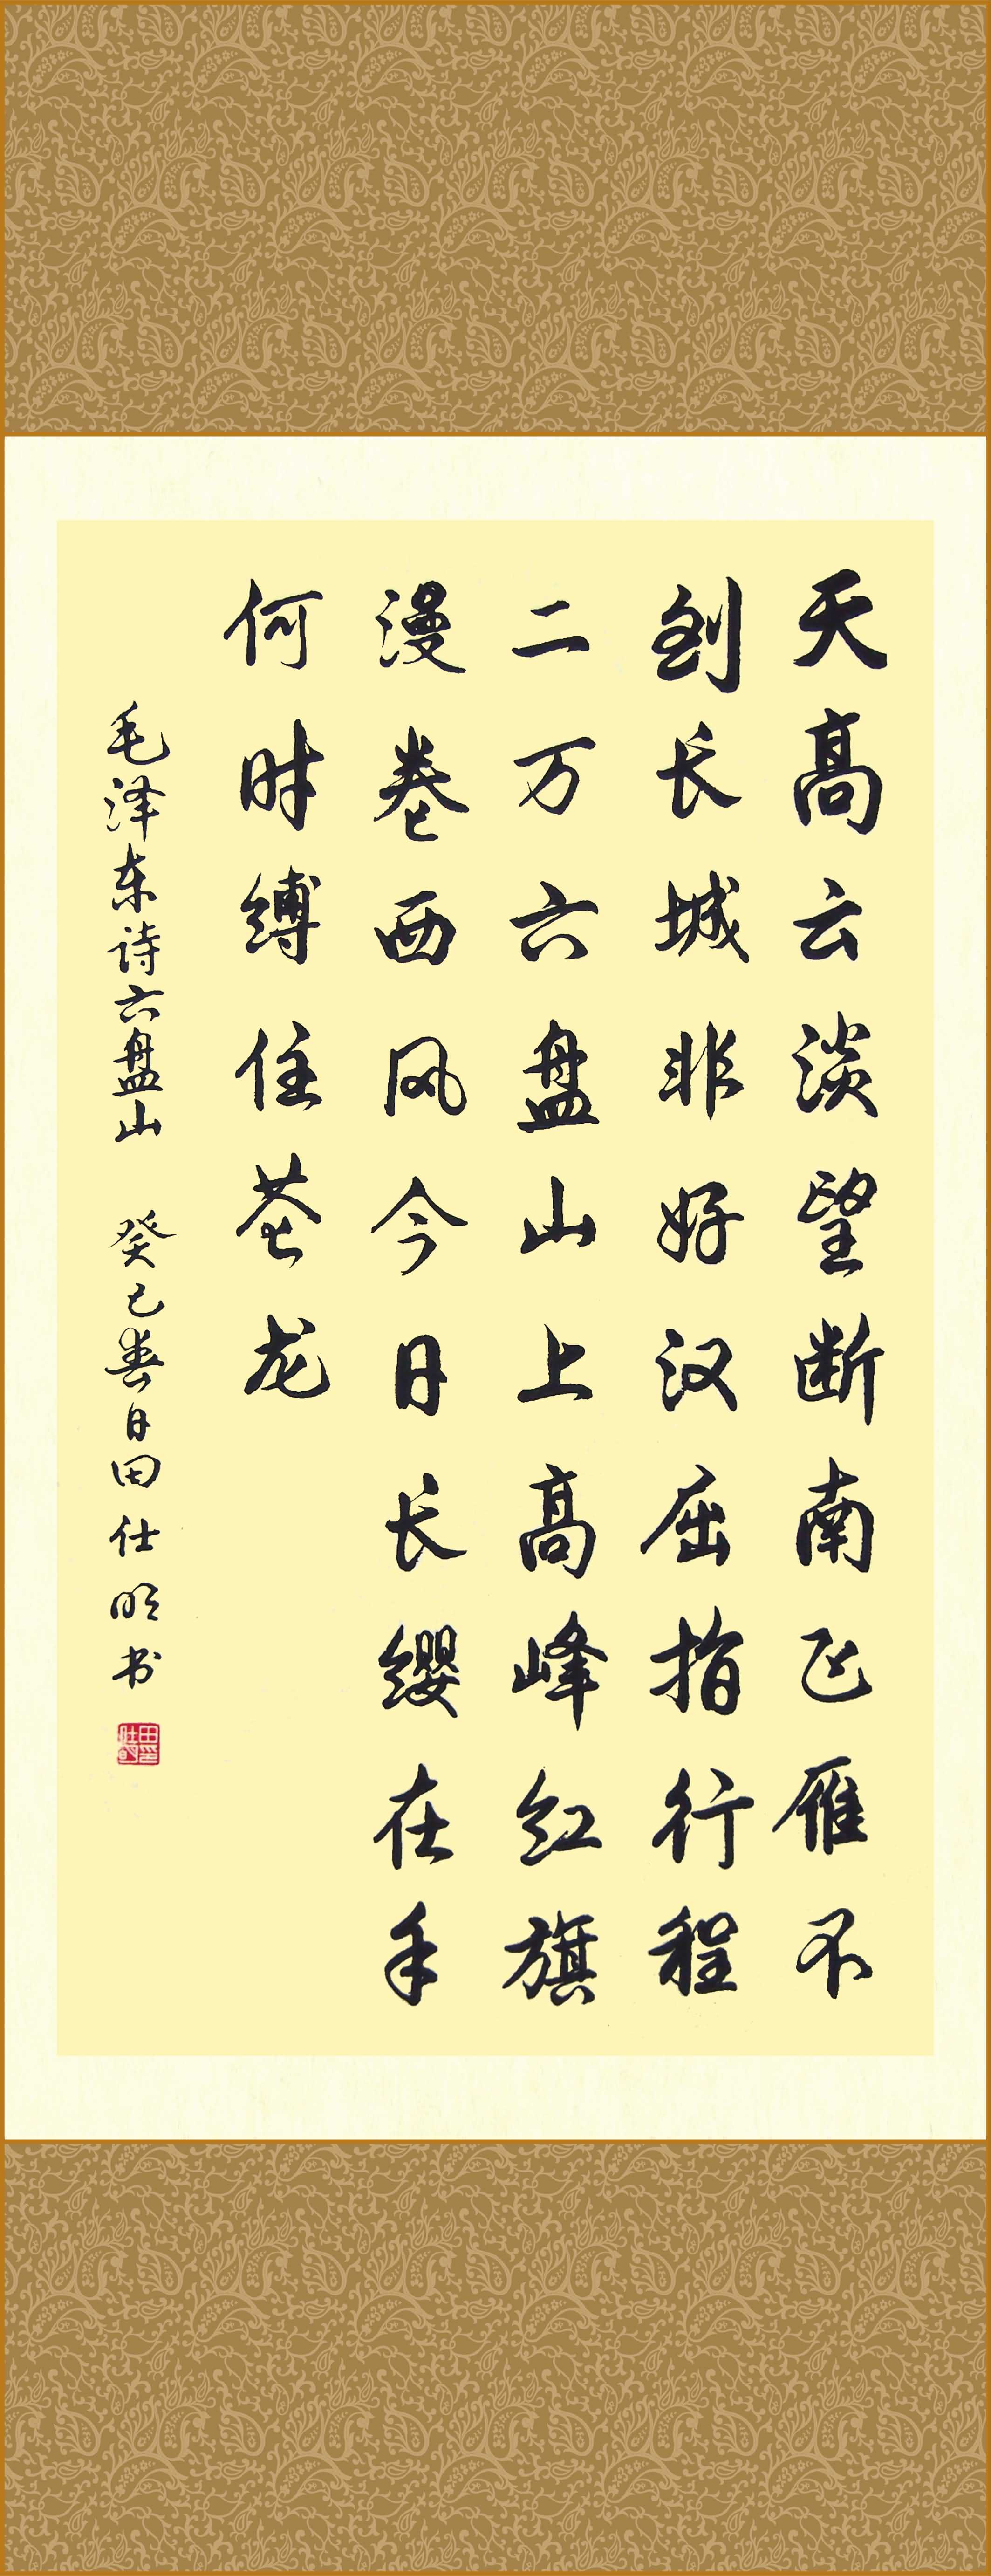 天高云淡望断南飞雁不
到长城非好汉屈指行程
二万六盘山上高峰红旗
漫卷西风今日长缨在手
何时缚住苍龙
毛泽东诗六盘山 癸巳春日田仕明书